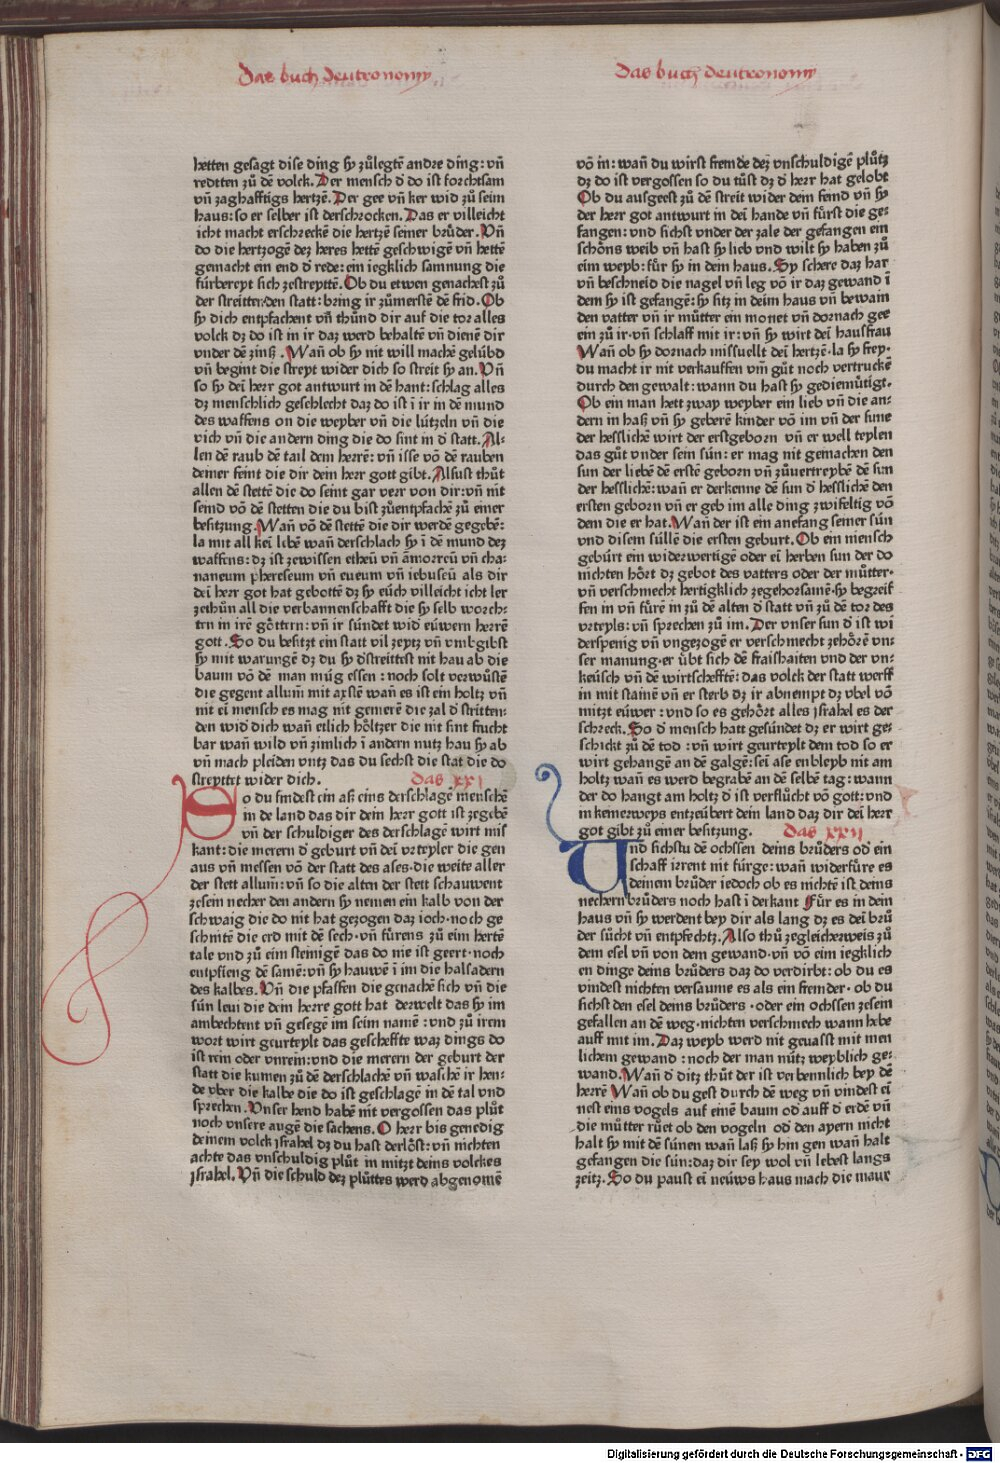 das buch deutronomy
hetten gesagt dise ding sy zůlegtē andre ding: vñ
redtten zů dē volck. Der mensch d̄ do ist forchtsam
vñ zaghafftigs hertzē. Der gee vñ ker wid zů seim
haus: so er selber ist derschrocken. Das er villeicht
icht macht erschreckē die hertzē seiner brůder. Vñ
do die hertzogē dez heres hettē geschwigē vñ hettē
gemacht ein end d̄ rede: ein iegklich samnung die
fürbereyt sich zestreyttē. Ob du etwen genachest zů
der streittenden statt: bring ir zůmerstē dē frid. Ob
sy dich entpfachent vñ thůnd dir auf die tor alles
volck dz do ist in ir daz werd behaltē vñ dienē dir
vnder dē zinß. Wañ ob sy nit will machē gelübd
vñ begint die streyt wider dich so streit sy an. Vñ
so sy deī herr got antwurt in dē hant: schlag alles
dz menschlich geschlecht daz do ist ī ir in dē mund
des waffens on die weyber vñ die lützeln vñ die
vich vñ die andern ding die do sint in d̄ statt. Al-
len dē raub dē tail dem herrē: vñ isse vō dē rauben
deiner feint die dir dein herr gott gibt. Alsust thůt
allen dē stettē die do seint gar verr von dir: vñ nit
seind vō dē stetten die du bist zůentpfachē zů einer
besitzung. Wañ vō dē stettē die dir werdē gegebē:
la mit all keī lebē wañ derschlach sy ī dē mund dez
waffens: dz ist zewissen etheū vñ āmorreū vñ cha-
naneum phereseum vñ eueum vñ iebuseū als dir
deī herr got hat gebottē dz sy eüch villeicht icht ler
zethůn all die verbannenschafft die sy selb worch-
ten in irē göttern: vñ ir sündet wid eüwern herrē
gott. So du besitzt ein statt vil zeytz vñ vmbgibst
sy mit warungē dz du sy d̄streittest nit hau ab die
baum vō dē man müg essen: noch solt verwüstē
die gegent allum̄ mit axstē wañ es ist ein holtz vñ
nit eī mensch es mag nit gemerē die zal d̄ stritten-
den wid̄ dich wañ etlich höltzer die nit sint frucht
bar wañ wild vñ zimlich ī andern nutz hau sy ab
vñ mach pleiden vntz das du sechst die stat die do
streyttet wider dich. das xxi
So du findest ein aß eins derschlagē menschē
in de land das dir dein herr gott ist zegebē
vñ der schuldiger des derschlagē wirt mis
kant: die merern d̄ geburt vñ deī vrteyler die gen
aus vñ messen vō der statt des ases. die weite aller
der stett allum̄: vñ so die alten der stett schauwent
zesein necher den andern sy nemen ein kalb von der
schwaig die do nit hat gezogen daz ioch. noch ge
schnitē die erd mit dē sech. vñ fürens zů eim hertē
tale vnd zů eim steinigē das do nie ist geert. noch
entpfieng dē samē: vñ sy hauwē ī im die halsadern
des kalbes. Vñ die pfaffen die genachē sich vñ die
sün leui die dein herre gott hat derwelt das sy im
ambechtent vñ gesegē im seim namē: vnd zů irem
wort wirt geurteylt das gescheffte waz dings do
ist rein oder vnrein: vnd die merern der geburt der
statt die kumen zů dē derschlachē vñ waschē ir hen-
de vber die kalbe die do ist geschlagē in dē tal vnd
sprechen. Vnser hend habē nit vergossen das plůt
noch vnsere augē die sachens. O herr bis genedig
deinem volck israhel dz du hast derlöst: vñ nichten
achte das vnschuldig plůt in mitzt deins volckes
israhel. Vñ die schuld dez plůttes werd abgenomē
das buch deutronomy
vō in: wañ du wirst fremde dez vnschuldigē plůtz
dz do ist vergossen so du tůst dz d̄ herr hat gelobt
Ob du ausgeest zů dē streit wider dein feind vñ sy
der herr got antwurt in deī hande vñ fürst die ge-
fangen: vnd sichst vnder der zale der gefangen ein
schöns weib vñ hast sy lieb vnd wilt sy haben zů
eim weyb: für sy in dein haus. Sy schere daz har
vñ beschneid die nagel vñ leg vō ir daz gewand ī
dem sy ist gefangē: sy sitz in deim haus vñ bewain
den vatter vñ ir můtter ein monet vñ dornach gee
ein zů ir. vñ schlaff mit ir: vñ sy wirt deī hausfrau
Wañ ob sy dornach missuellt deī hertzē. la sy frey.
du macht ir nit verkauffen vm̄ gůt noch vertruckē
durch den gewalt: wann du hast sy gediemůtigt.
Ob ein man hett zway weyber ein lieb vñ die an-
dern in haß vñ sy geberē kinder vō im vñ der sune
der hesslichē wirt der erstgeborn vñ er well teylen
das gůt vnder sein sün: er mag nit gemachen den
sun der liebē dē erstē geborn vñ zůuertreybē dē sun
der hesslichē: wañ er derkenne dē sun d̄ hesslichē den
ersten geborn vñ er geb im alle ding zwifeltig vō
dem die er hat. Wañ der ist ein anefang seiner sün
vnd disem süllē die ersten geburt. Ob ein mensch
gebürt ein widerwertigē oder eī herben sun der do
nichten hört dz gebot des vatters oder der můtter.
vñ verschmecht hertigklich zegehorsamē. sy begreif
fen in vñ fürē in zů dē alten d̄ statt vñ zů dē tor des
vrteyls: vñ sprechen zů im. Der vnser sun d̄ ist wi
derspenig vñ vngezogē er verschmecht zehörē vn-
ser manung. er übt sich dē fraishaiten vnd der vn-
keüsch vñ dē wirtschefftē: das volck der statt werff
in mit stainē vñ er sterb dz ir abnempt dz vbel vō
mitzt eüwer: vnd so es gehört alles israhel es der
schreck. So d̄ mensch hatt gesündet dz er wirt ge-
schickt zů dē tod: vñ wirt geurteylt dem tod so er
wirt gehangē an dē galgē: seī ase enbleyb nit am
holtz wañ es werd begrabē an dē selbē tag: wann
der do hangt am holtz d̄ ist verflücht vō gott: vnd
in keinerweys entzeübert dein land daz dir deī herr
got gibt zů einer besitzung. das xxii
Und sichstu dē ochssen deins brůders od̄ ein
schaff irrent nit fürge: wañ widerfüre es
deinem brůder iedoch ob es nichtē ist deins
nechern brůders noch hast ī derkant Für es in dein
haus vñ sy werdent bey dir als lang dz es deī brů
der sücht vñ entpfechtz. Also thů zegleicherweis zů
dem esel vñ von dem gewand. vñ vō eim iegklich
en dinge deins brůders daz do verdirbt: ob du es
vindest nichten versaume es als ein fremder. ob du
sichst den esel deins brůders. oder ein ochssen zesem
gefallen an dē weg. nichten verschmech wann hebe
auff mit im. Daz weyb werd nit geuasst mit men
lichem gewand: noch der man nütz weyblich ge-
wand. Wañ d̄ ditz thůt der ist verbennlich bey dē
herrē Wañ ob du gest durch dē weg vñ vindest eī
nest eins vogels auf einē baum od̄ auff d̄ erdē vñ
die můtter růet ob den vogeln od̄ den ayern nicht
halt sy mit dē sünen wañ laß sy hin gen wañ halt
gefangen die sün: daz dir sey wol vñ lebest langs
zeitz. So du paust eī neüws haus mach die maur
Digitalisierung gefördert durch die Deutsche Forschungsgemeinschaft - DFG